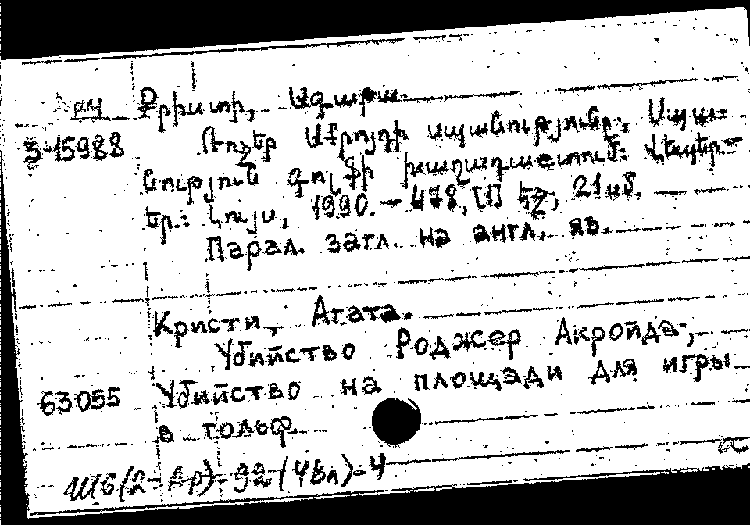 Քրիստի, Ագաթա.
3-15988 Ռոջեր Աքրոյդի սպանությունը; Սպա-
նություն գոլֆի խաղադաշտում: Վեպեր.-
Եր.: Լույս, 1990. - 478, [1] էջ; 21 սմ.
Парал. загл. на англ. яз.
Кристи, Агата.
Убийство Роджер Акройда;
63055 Убийство на площади для игры
в гольф.
И6(2=Ар)-92(4Вл)-4